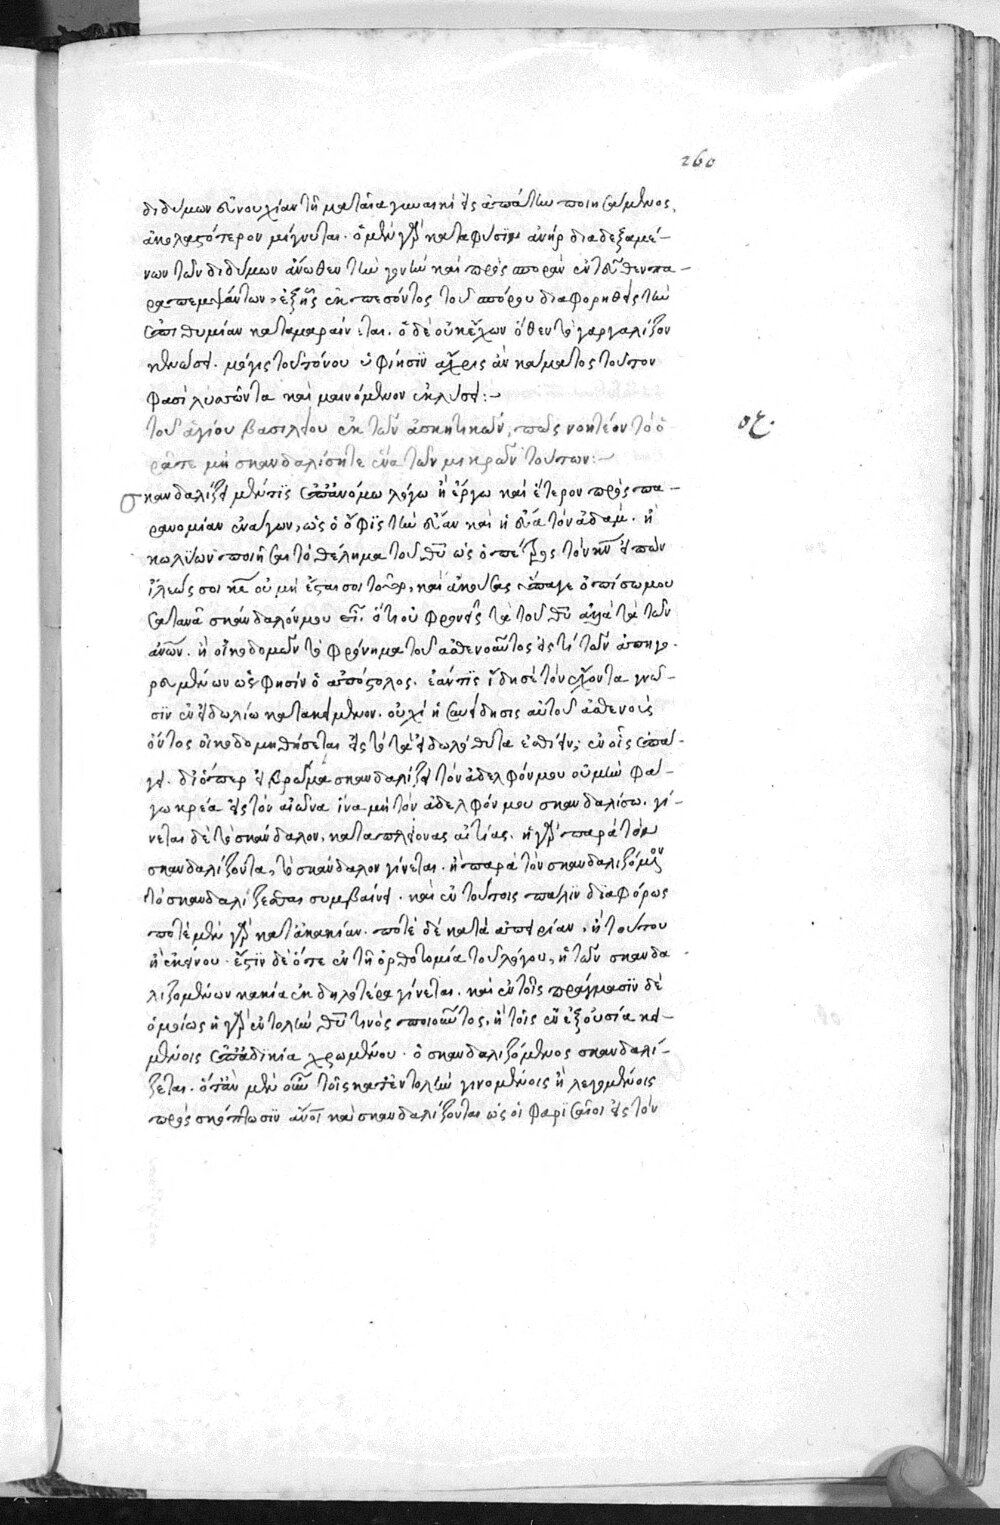 260
διδύμων συνουσίαν τῆ ματαία γυναικὶ εἰς ἀπάτην ποιησάμενος,
ἀκολαστότερον μίγνυται. ὁ μὲν γὰρ κατὰ φύσιν ἀνὴρ διαδεξαμέ-
νων τῶν διδύμων ἄνωθεν τὴν γονὴν καὶ πρὸς σπορὰν ἐντεῦθεν πα-
ραπεμψάντων, ἑξῆς ἐκπεσόντος τοῦ σπόρου διαφορηθεὶς τὴν
ἐπιθυμίαν καταμαραίνεται. ὁ δὲ οὐκ ἔχων ὅθεν τὸ γαργαλίζον
κενώσει. μόγις τοῦ πόνου ὑφίησιν ἄχρις ἂν καμάτος τοῦτον
φασὶ λυσσῶντα καὶ μαινόμενον ἐκλύσει:-
τοῦ ἁγίου βασιλείου ἐκ τῶν ἀσκητικῶν, πῶς νοητέον τὸ ὁ
ρᾶτε μὴ σκανδαλίσητε ἕνα τῶν μικρῶν τούτων:-
οζ.
σκανδαλίζει μέν τις ἐπὰν ἀνόμω λόγω ἢ ἔργω καὶ ἕτερον πρὸς πα-
ρανομίαν ἐνάγων, ὡς ὁ ὄφις τὴν εὔαν καὶ ἡ εὔα τὸν ἀδάμ. ἢ
κωλύων ποιῆσαι τὸ θέλημα τοῦ θυ ὡς ὁ πέτρος τὸν κν εἰπὼν
ἵλεώς σοι κε οὐ μὴ ἔσται σοι τοῦτο, καὶ ἀκούσας ὕπαγε ὀπίσω μου
σατανᾶ σκάνδαλόν μου εἶ. ὅτι οὐ φρονεῖς τὰ τοῦ θυ ἀλλὰ τὰ τῶν
ἀνων. ἢ οἰκοδομῶν τὸ φρόνημα τοῦ ἀσθενοῦντος εἴς τι τῶν ἀπηγο-
ρευμένων ὥς φησιν ὁ ἀπόστολος. ἐάν τις ἴδη σὲ τὸν ἔχοντα γνῶ-
σιν ἐν εἰδωλίω κατακείμενον. οὐχὶ ἡ συνείδησις αὐτοῦ ἀσθενοῦς
ὄντος οἰκοδομηθήσεται εἰς τὸ τὰ εἰδωλόθυτα ἐσθίειν; ἐν οἷς ἐπά-
γει. διόπερ εἰ βρῶμα σκανδαλίζει τὸν ἀδελφόν μου οὐ μὴ φά-
γω κρέα εἰς τὸν αἰῶνα ἵνα μὴ τὸν ἀδελφόν μου σκανδαλίσω. γί-
νεται δὲ τὸ σκάνδαλον, κατὰ πλείονας αἰτίας. ἢ γὰρ παρὰ τὸν
σκανδαλίζοντα, τὸ σκάνδαλον γίνεται. ἢ παρὰ τὸν σκανδαλιζόμενον
τὸ σκανδαλίζεσθαι συμβαίνει. καὶ ἐν τούτοις πάλιν διαφόρως
ποτὲ μὲν γὰρ κατὰ κακίαν. ποτὲ δὲ κατὰ ἀπειρίαν, ἢ τούτου
ἢ ἐκείνου. ἔστιν δὲ ὅτε ἐν τῆ ὀρθοτομία τοῦ λόγου, ἡ τῶν σκανδα
λιζομένων κακία ἐκδηλοτέρα γίνεται. καὶ ἐν τοῖς πράγμασιν δὲ
ὁμοίως ἢ γὰρ ἐντολὴν θυ τινὸς ποιοῦντος, ἢ τοῖς ἐν ἐξουσία κει-
μένοις ἐπ' ἀδικία χρωμένου. ὁ σκανδαλιζόμενος σκανδαλί-
ζεται. ὅταν μὲν οὖν τοῖς κατ' ἐντολὴν γινομένοις ἢ λεγομένοις
πρὸς σκόπτωσιν ἀνοι καὶ σκανδαλίζονται ὡς οἱ φαρισαῖοι εἰς τὸν